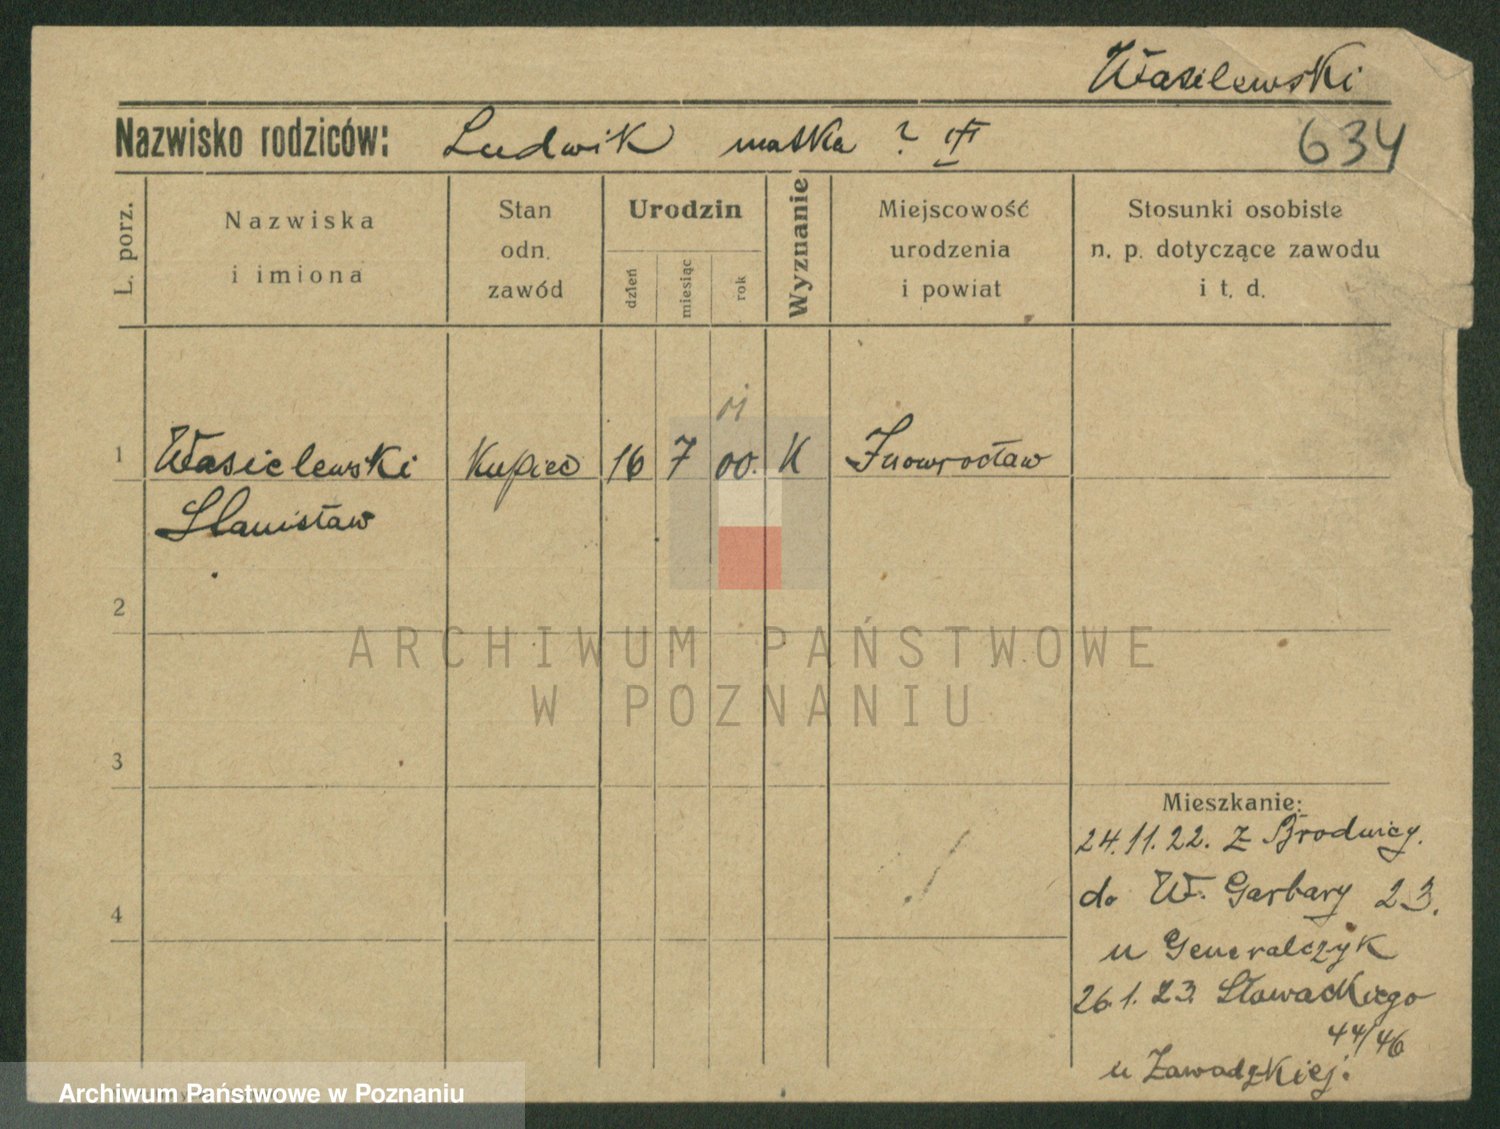 Wasilewski
Nazwisko rodziców: Ludwik matka ?
634
L. porz.
Nazwiska
i imiona
Stan
odn.
zawód
Urodzin
dzień
miesiąc
rok
Wyznanie
Miejscowość
urodzenia
i powiat
Stosunki osobiste
n. p. dotyczące zawodu
i t. d.
1 Wasielewski Kupiec 16 7 00. K Inowrocław
Stanisław
2
3
4
Mieszkanie:
24.11.22. z Brodnicy.
do W. Garbary 23.
u Generalczyk
26.1.23. Słowackiego
44/46
u Zawadzkiej.
ARCHIWUM PAŃSTWOWE
W POZNANIU
Archiwum Państwowe w Poznaniu